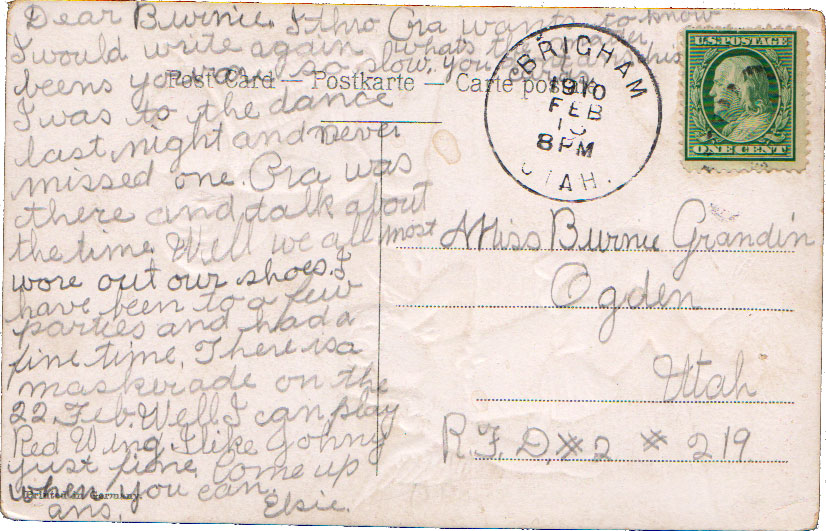 Dear Burnie. I thro Ora wants to know
I would write again whats the matter
beens you are so slow. you said this
Post Card — Postkarte — Carte postale
I was to the dance
last night and never
missed one. Ora was
there and talk about
the time. Well we all most
wore out our shoes. I
have been to a few
parties and had a
fine time. There is a
maskerade on the
22, Feb. Well I can play
Red Wing. I like Johny
just fine. come up
when you can.
Printed in Germany.
ans. Elsie.
BRIGHAM
1910
FEB
8 PM
UTAH.
U.S. POSTAGE
ONE CENT
Miss Burnie Grandin
Ogden
Utah
R.F.D. #2 # 219